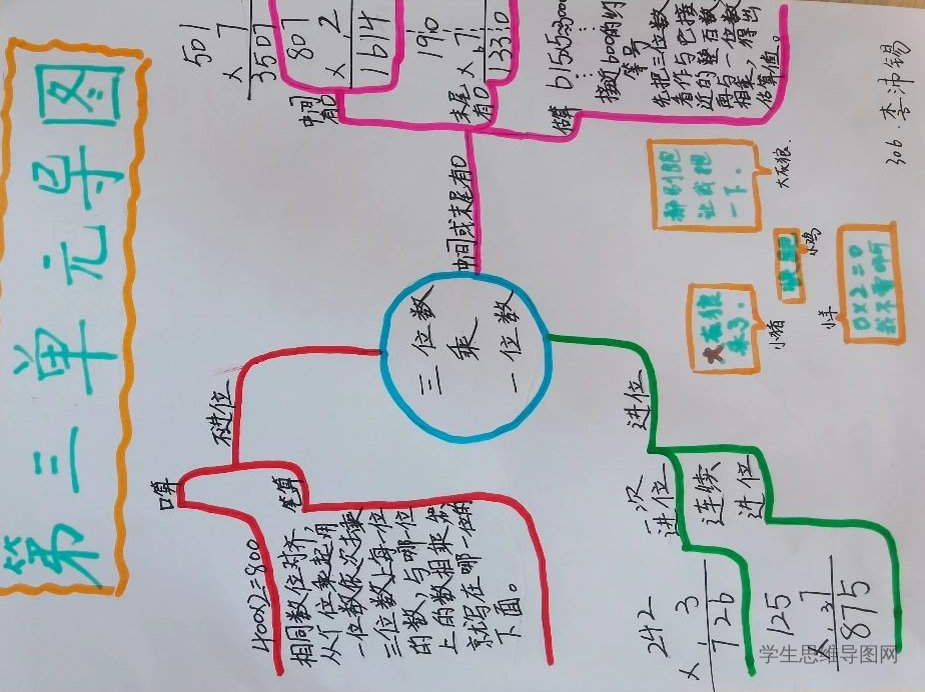 第三单元导图
三位数
乘
一位数
不进位
口算
400×2=800
笔算
相同数位对齐,
从个位乘起,用
一位数依次去乘
三位数上每一位
的数,与哪一位
上的数相乘,积
就写在哪一位的
下面。
中间或末尾有0
中间
有0
501
× 7
3507
807
× 2
1614
末尾
有0
190
× 7
1330
估算
615×5≈3000
接近600的约
等号
先把三位数
看作与它接
近的整百数
再与一位数
相乘,得出
估算值。
进位
一次
进位
242
× 3
726
连续
进位
125
× 7
875
都别跑
让我抱
一下。
大灰狼.
快跑
小鸡
大灰狼
来马.
小猪
0×2=0
小羊
306.李沛锡
学生思维导图网